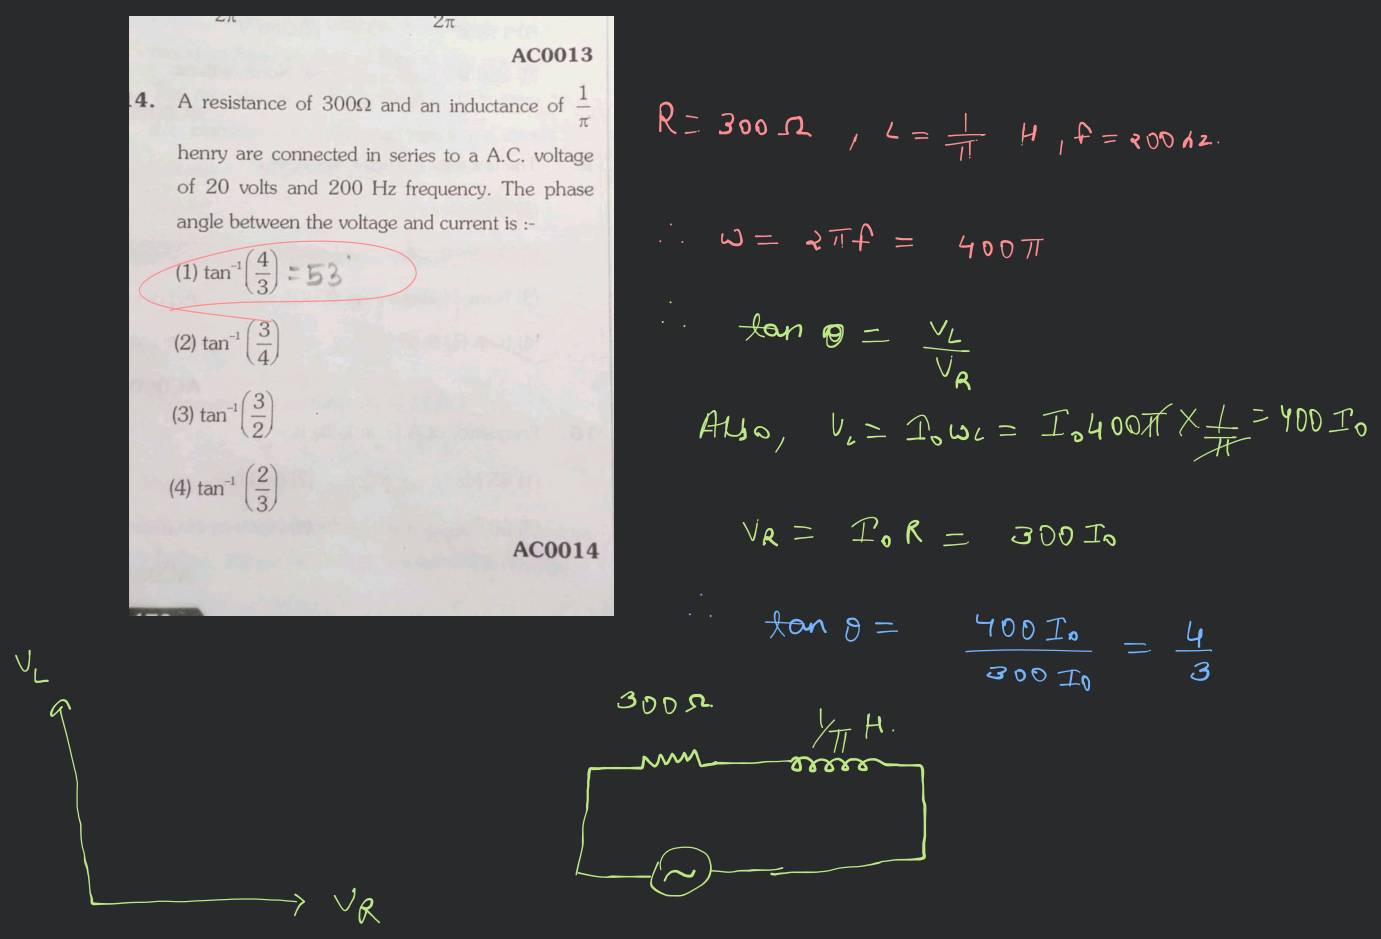 2π 2π
AC0013
4. A resistance of 300Ω and an inductance of 1/π
henry are connected in series to a A.C. voltage
of 20 volts and 200 Hz frequency. The phase
angle between the voltage and current is :-
(1) tan⁻¹(4/3) = 53°
(2) tan⁻¹(3/4)
(3) tan⁻¹(3/2)
(4) tan⁻¹(2/3)
AC0014
R = 300 Ω , L = 1/π H , f = 200 hz.
∴ ω = 2πf = 400π
∴ tan θ = V_L/V_R
Also, V_L = I₀ωL = I₀400π × 1/π = 400 I₀
V_R = I₀R = 300 I₀
∴ tan θ = 400 I₀/300 I₀ = 4/3
300Ω
1/π H.
V_L
V_R